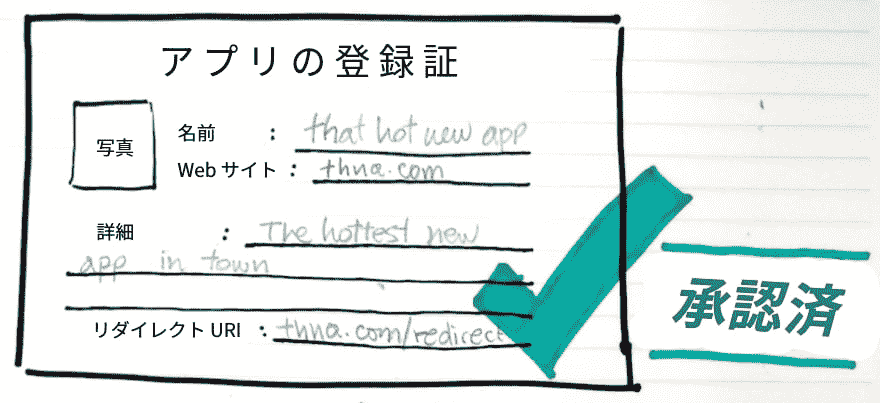 アプリの登録証
写真
名前 : that hot new app
Web サイト : thna.com
詳細 : The hottest new
app in town
リダイレクト URI : thna.com/redirect
承認済